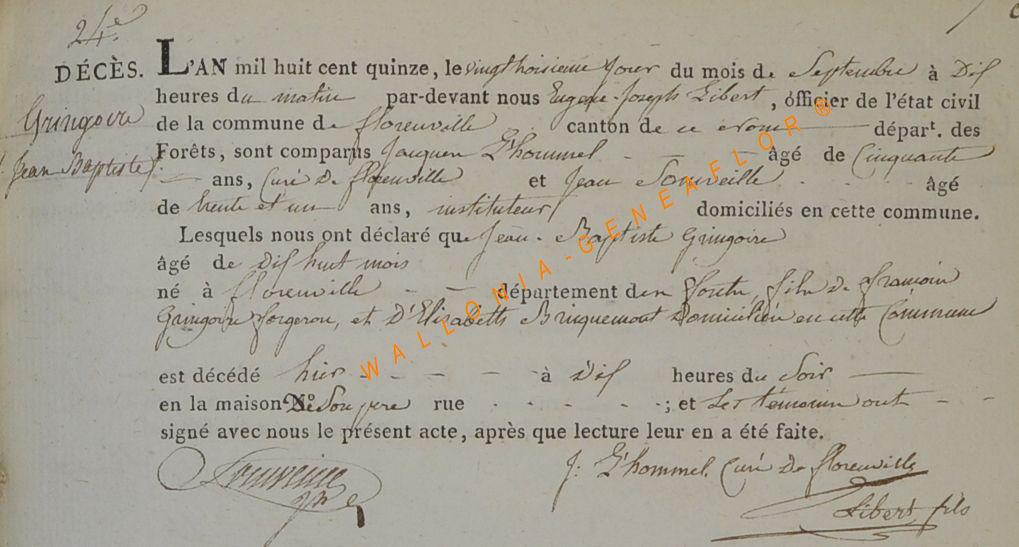 24.e
DÉCÈS. L'AN mil huit cent quinze, le vingt troisieme jour du mois de Septembre à Dix
heures du matin par-devant nous Eugene-Joseph Libert, officier de l'état civil
Gringoire
de la commune de florenville canton de ce nom départ. des
Jean Baptiste
Forêts, sont comparus Jacques L'hommel - âgé de Cinquante
— ans, Curé de florenville et Jean Souveille âgé
de trente et un ans, instituteur domiciliés en cette commune.
Lesquels nous ont déclaré que Jean-Baptiste Gringoire
âgé de dix huit mois
né à florenville - - département des forêts, fils de françois
Gringoire forgeron, et D'Elizabeth Briquemont Domiciliés en cette Commune
est décédé hier - - - - - à Dix heures du Soir —
en la maison N.o De Son pere rue - - - - - ; et Les témoins ont - -
signé avec nous le présent acte, après que lecture leur en a été faite.
J: L'hommel Curé de florenville
Libert fils
WALLONIA-GENEAFLOR ®